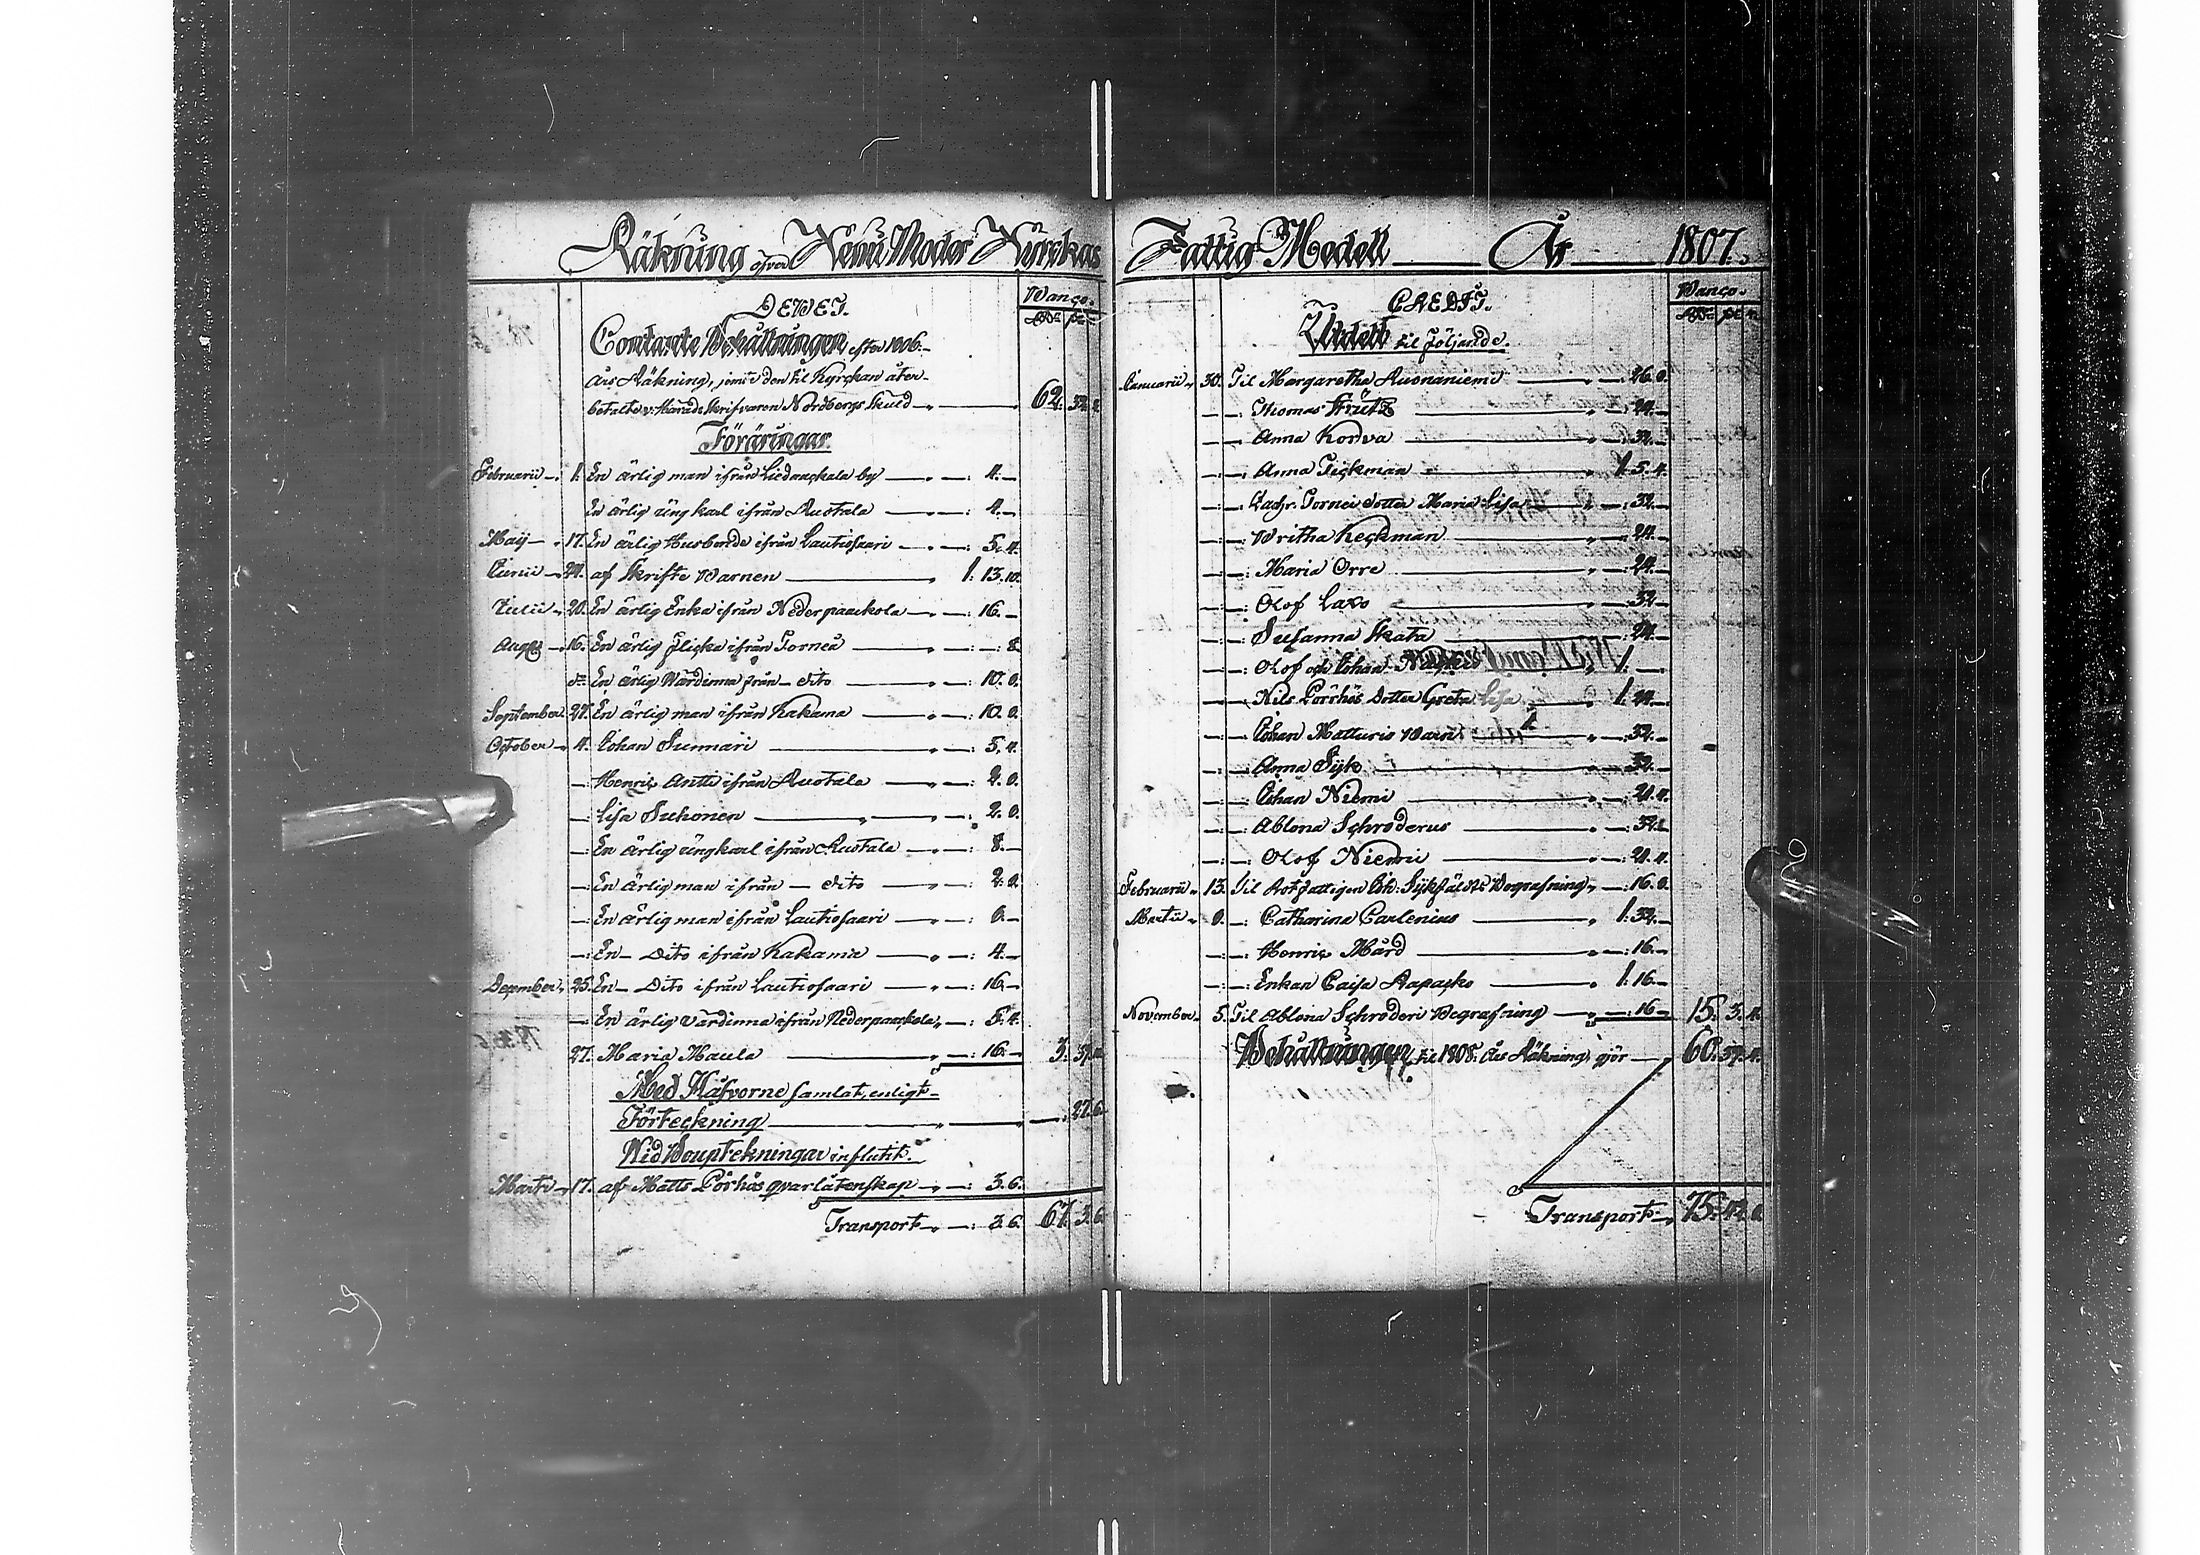 Räkning öfver Nemu Moder Kyrckas
DEBET.
Banco.
Contante Behållningen efter 1806.
Års Räkning, jemte den til Kyrckan åter-
betalte v: Härads Skrifvaren Nordbergs Skuld 62: 32.
Föräringar.
Februarii 1. En ärlig man ifrån Liedackala by —: 4.—
En ärlig ungkarl ifrån Ruotala —: 4.—
Maij 17. En ärlig Husbonde ifrån Lautiosaari —: 5.4.
Junii 24. af Skrifte Barnen 1: 13.10.
Julii 20. En ärlig Enka ifrån Nederpaackola —: 16.—
Aug 16. En ärlig Flicka ifrån Torneå —: —: 8
do En ärlig Wärdinna från dito —: 10.8.
September 27. En ärlig man ifrån Kakama —: 10.8.
October 4. Johan Sunnari —: 5.4.
—: Henric Antti ifrån Ruotala —: 2.8.
—: Lisa Suhonen —: 2.8.
—: En ärlig ungkarl ifrån Ruotala —: 8.—
—: En ärlig man ifrån — dito —: 2.8.
—: En ärlig man ifrån Lautiosaari —: 8.—
—: En — Dito ifrån Kakama —: 4.—
December 25. En — Dito ifrån Lautiosaari —: 16.—
—: En ärlig Värdinna ifrån Nederpaackola —: 5.4.
27. Maria Maula —: 16.— 3: 37.
Med Håfvorne samlat, enligt
Förteckning —: 27.6.
Wid Bouptekningar influtit.
Martii 17. af Matts Pörhös qvarlåtenskap —: 3.6.
Transport —: 3.6. 67: 3.6
Fattig Medell År 1807.
CREDIT.
Banco.
Utdelt til följande.
Januarii 30. Til Margaretha Ruonaniemi —: 26.8.
—: —: Thomas —: 24.—
—: —: Anna Korva —: 32.—
—: —: Anna Tickman 1: 5.4.
—: —: Zachr. Tornei dotter Maria Lisa —: 32.—
—: —: Britha Keckman —: 24.—
—: —: Maria Orre —: 24.—
—: —: Olof Laxo —: 32.—
—: —: Susanna Skata —: 24.—
—: —: Olof och Johan 1: —
—: —: Nils Pörhös Dotter Greta Lisa 1: 24.—
—: —: Johan Matturis Barn —: 32.—
—: —: Anna Sijk —: 32.—
—: —: Johan Niemi —: 21.4.
—: —: Ablona Schroderus —: 32.
—: —: Olof Niemi —: 21.4.
Februarii 13. Til Rotfattigen Joh: Sijkfäldts Begrafning —: 16.8.
Martii 8. —: Catharina Carlenius 1: 32.—
—: —: Henric Mård —: 16.—
—: —: Enkan Caisa Rapacko 1: 16.—
November 5. Til Ablona Schroderi Begrafning —: 16.— 15: 3.4.
Behållningen til 1808. Års Räkning, gjör 60: 39.4.
Transport 75: 42.8.